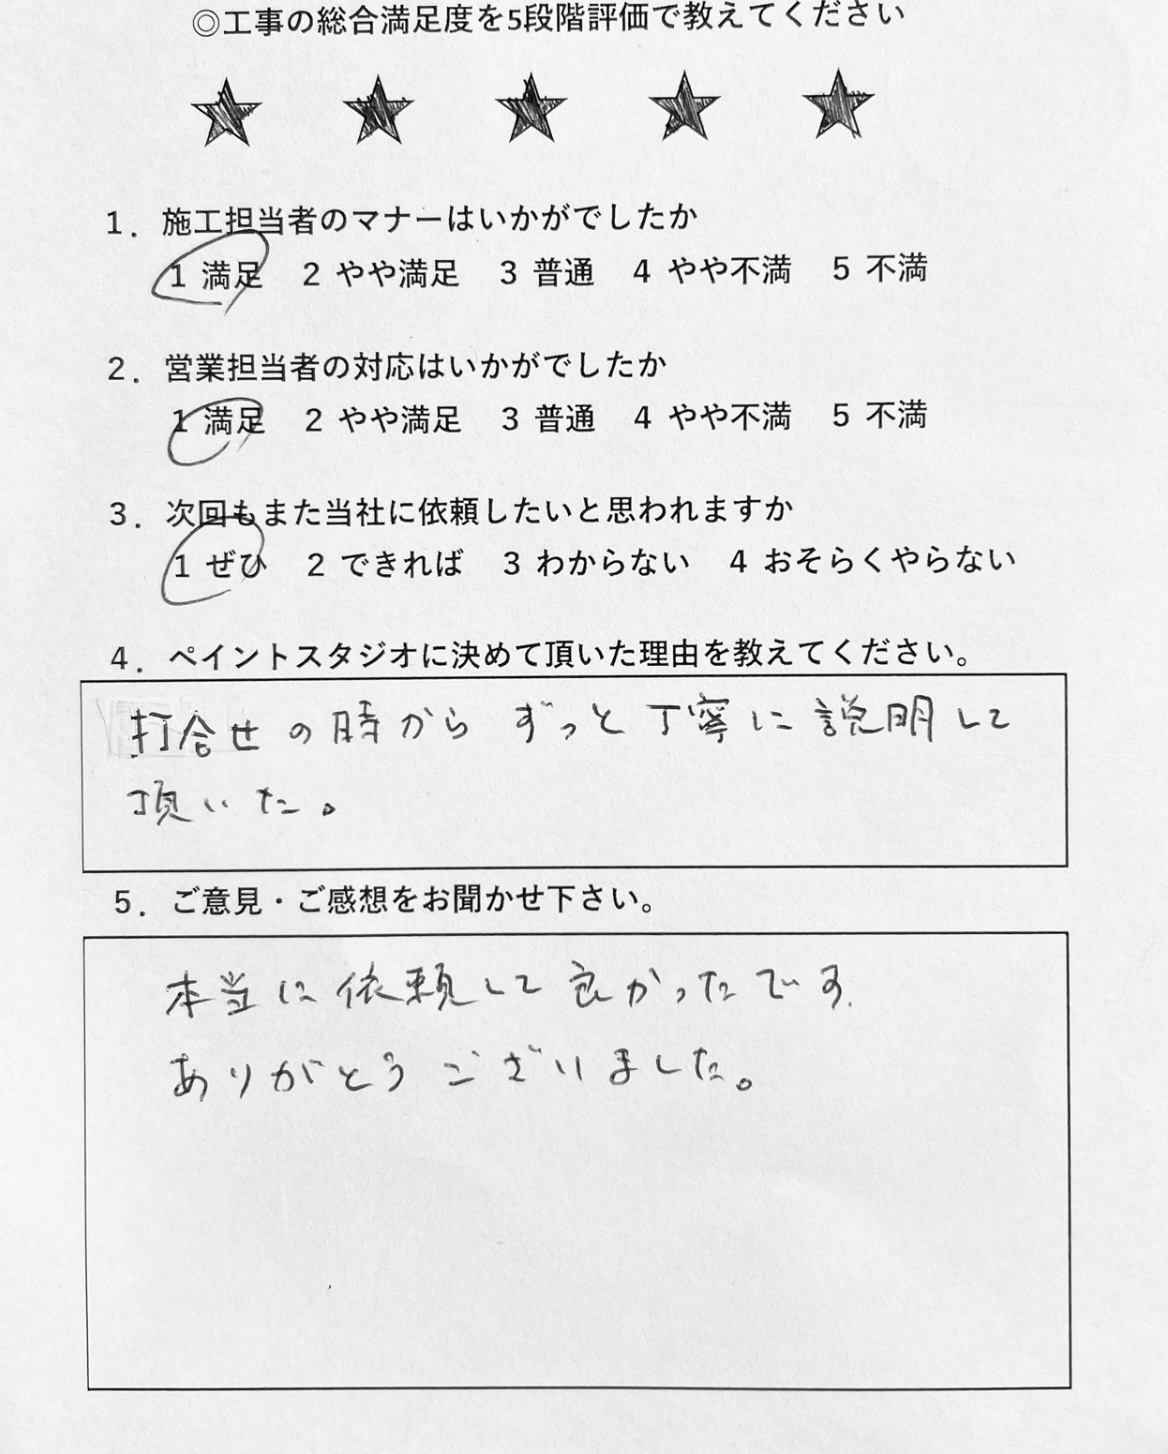 ◎工事の総合満足度を5段階評価で教えてください
★ ★ ★ ★ ★
1. 施工担当者のマナーはいかがでしたか
1 満足 2 やや満足 3 普通 4 やや不満 5 不満
2. 営業担当者の対応はいかがでしたか
1 満足 2 やや満足 3 普通 4 やや不満 5 不満
3. 次回もまた当社に依頼したいと思われますか
1 ぜひ 2 できれば 3 わからない 4 おそらくやらない
4. ペイントスタジオに決めて頂いた理由を教えてください。
打合せの時からずっと丁寧に説明して
頂いた。
5. ご意見・ご感想をお聞かせ下さい。
本当に依頼して良かったです.
ありがとうございました。